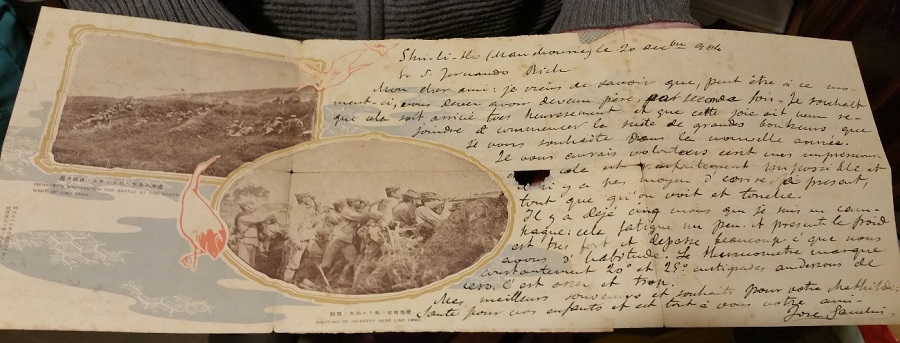 INFANTRY'S PREPARATION FOR BATTLE AT THE SOUTH
WEST OF LIAO YANG
FIGHTING OF INFANTRY NEAR LIAO YANG
(Mandchourie) le 20 decbre 1904
Sr D. Fernando Rich
Mon cher ami: je viens de savoir que, peut être à ce mo-
ment-ci, vous devez avoir devenu père, par seconde fois. Je souhait
que cela soit arrivé très heureusement et que cette joie ait venu se
joindre et commencer la suite de grands bonheurs que
je vous souhaite dans la nouvelle année.
Je vous aurais volontiers ecrit mes impressions
cela est impossible et
il n'y a pas moyen d'ecrire, à présent,
tout que qu'on voit et
Il y a déjà cinq mois que je suis en cam-
pagne: cela fatigue un peu. A present le froid
est très fort et depasse beaucoup ce que nous
avons d'habitude. Le thermomètre marque
constantement 20° et 25° centigrades audessous de
zero. C'est assez et trop.
Mes meilleurs souvenirs et souhaits pour votre Mathilde:
Santé pour vos enfants et est tout à vous votre ami-
Jose